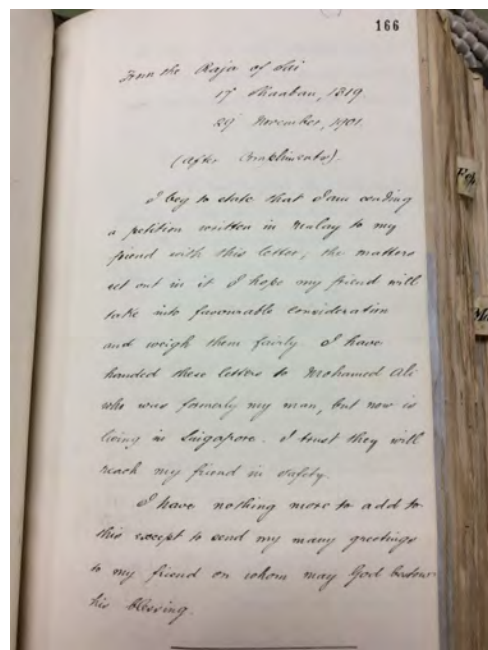 166
From the Raja of Sai
17 Shaaban, 1319.
29 November, 1901.
(After Compliments).
I beg to state that I am sending
a petition written in Malay to my
friend with this letter; the matters
set out in it I hope my friend will
take into favourable consideration
and weigh them fairly. I have
handed these letters to Mohamed Ali
who was formerly my man, but now is
living in Singapore. I trust they will
reach my friend in safety.
I have nothing more to add to
this except to send my many greetings
to my friend on whom may God bestow
his blessing.